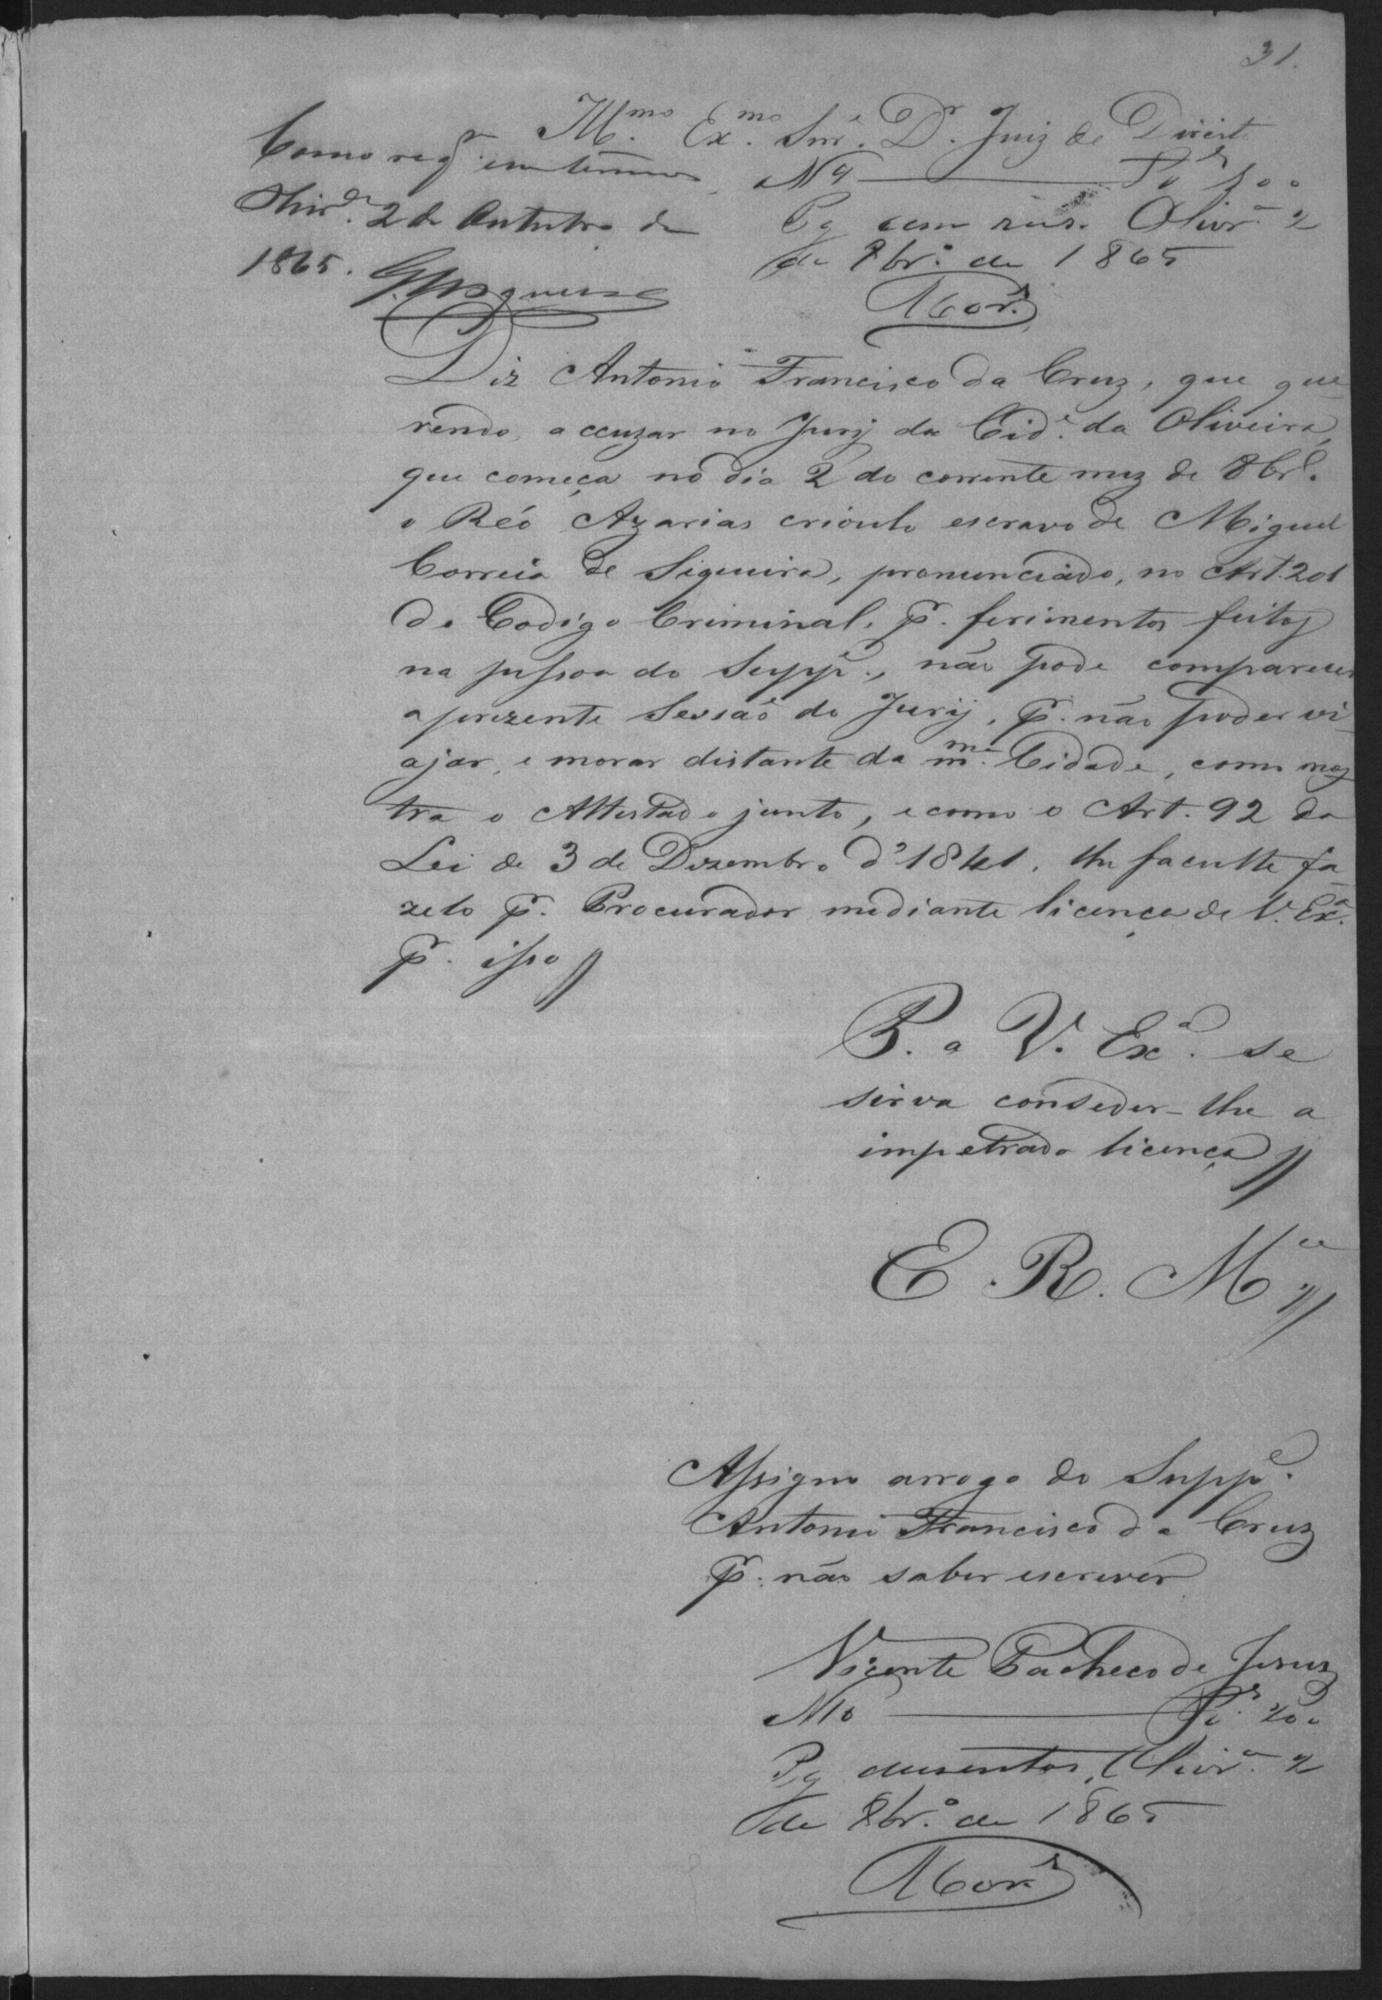 31.
Illmo. Exmo. Snr. Dr. Juiz de Direit
Como reqr. em termos
Olivra. 2 de Outubro de
1865.
N 9 Rs 100
Pg cem reis. Olivra. 2
de 8bro. de 1865
Diz Antonio Francisco da Cruz, que que-
rendo accuzar no Jury da Cide. da Oliveira,
que começa no dia 2 do corrente mez de 8bro.
o Reó Azarias crioulo escravo de Miguel
Correia de Siqueira, pronunciado, no Art. 201
do Codigo Criminal, pr. ferimentos feitos
na pessoa do Suppe., não pode comparecer
a prezente Sessaõ do Jury, pr. não poder vi-
ajar, e morar distante da mma. Cidade, como mos
tra o Attestado junto, e como o Art. 92 da
Lei de 3 de Dezembro d'1841. lhe faculte fa-
zelo pr. Procurador mediante licença de V. Exa.
pr. isso //
P. a V. Exa. se
sirva conseder-lhe a
impetrada licença //
E. R. Mce //
Assigno arrogo do Suppe.
Antonio Francisco da Cruz
pr. não saber escrever
Vicente Pacheco de Jesus
N 10 Rs. 200
Pg dusentos, Olivra. 2
de 8bro. de 1865